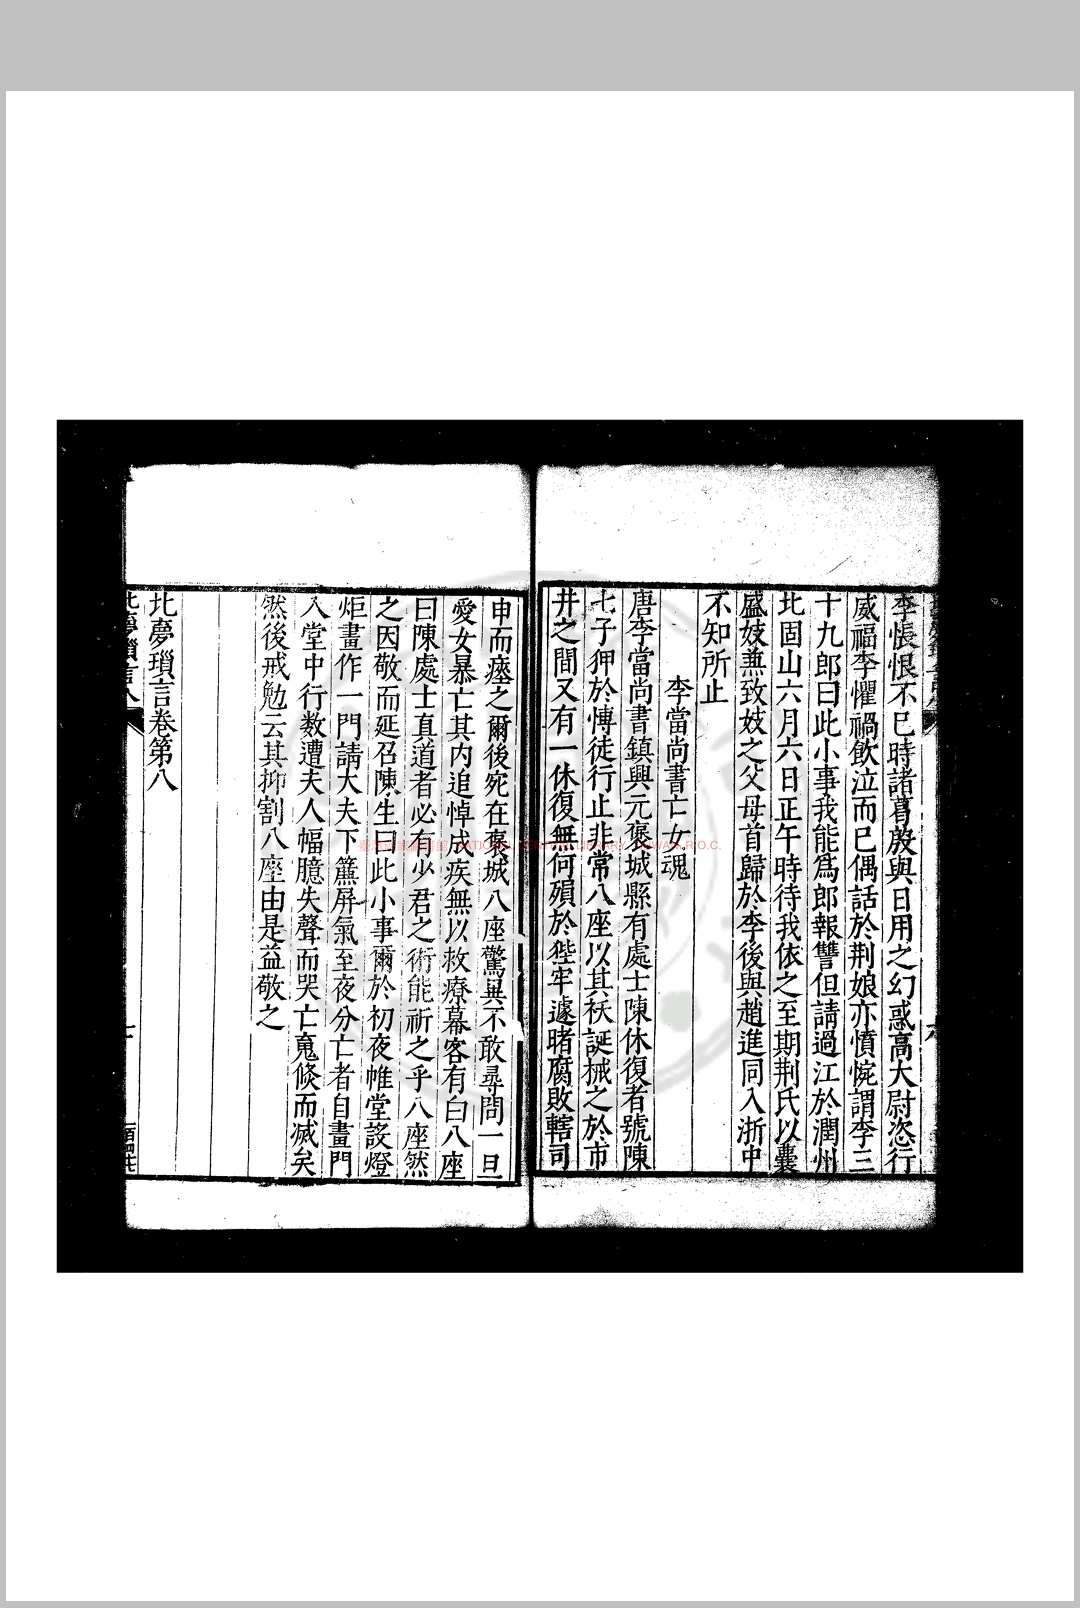 李悵恨不已時諸葛殷與日用之幻惑高大尉恣行
威福李懼禍飲泣而已偶話於荆娘亦憤惋謂李三
十九郎曰此小事我能爲郎報讐但請過江於潤州
北固山六月六日正午時待我依之至期荆氏以囊
盛妓兼致妓之父母首歸於李後與趙進同入浙中
不知所止
李當尚書亡女魂
唐李當尚書鎮興元褒城縣有處士陳休復者號陳
七子狎於愽徒行止非常八座以其袄誕械之於市
井之間又有一休復無何殞於狴牢遽睹腐敗轄司
申而瘞之爾後宛在褒城八座驚異不敢尋問一旦
愛女暴亡其内追悼成疾無以救療幕客有白八座
曰陳處士真道者必有少君之術能祈之乎八座然
之因敬而延召陳生曰此小事爾於初夜帷堂設燈
炬畫作一門請大夫下簾屏氣至夜分亡者自畫門
入堂中行數遭夫人幅臆失聲而哭亡䰟倐而滅矣
然後戒勉云其抑割八座由是益敬之
北夢瑣言卷第八
北夢瑣言八
七
NATIONAL CENTRAL LIBRARY, TAIWAN, R.O.C.